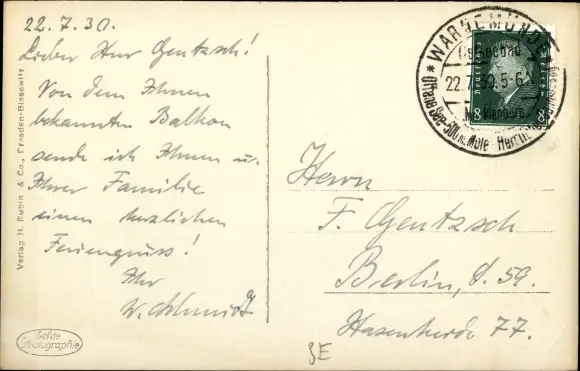 22.7.30.
Lieber Herr Gentzsch!
Von dem Ihnen
bekannten Balkon
sende ich Ihnen u.
Ihrer Familie
einen herzlichen
Feriengruss!
Ihr
W. Schmidt
Verlag H. Rubin & Co., Dresden-Blasewitz
Echte
Photographie
* WARNEMÜNDE *
Ostseebad
22.7.30.5-6
Mecklenburg
Offene See-500 m. Mole-
8 8
Herrn
F. Gentzsch
Berlin, S. 59.
Hasenheide 77.
BE